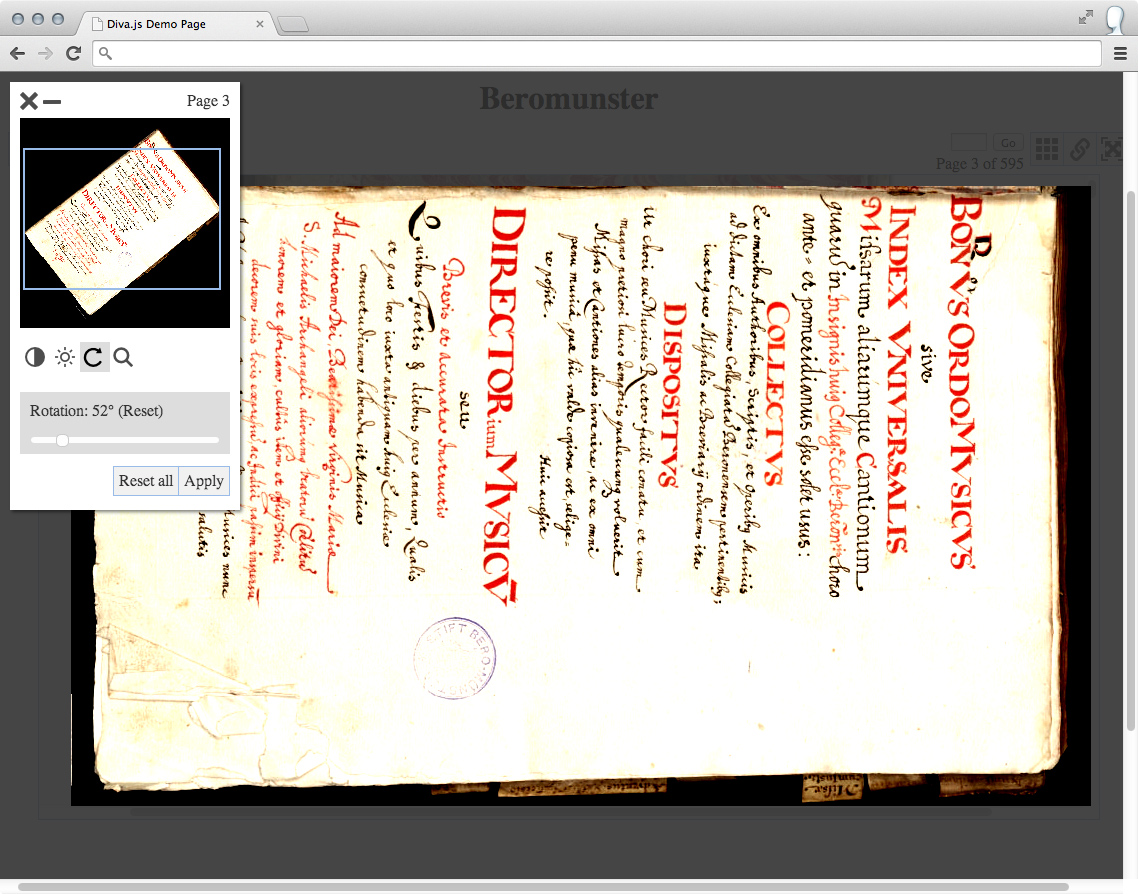 Diva.js Demo Page
Beromunster
Page 3
Go
Page 3 of 595
Rotation: 52° (Reset)
Reset all
Apply
BONVS ORDO MVSICVS
sive
INDEX VNIVERSALIS
Missarum aliarumque Cantionum
quarū in Insignis huiꝰ Colleg. Eccl. Berōn. choro
ante- et pomeridianus esse solet usus:
COLLECTVS
Ex omnibus Authoribus, Scriptis, et Operibꝰ Musicis
ad Ecclesiam Collegiatā Beronensem pertinentibꝰ;
iuxtáque Missalis ac Breviarij ordinem ita
DISPOSITVS
Ut chori seu Musices Rector facili conatu, et cum
magno pretiosi temporis qualecunq voluerit
Missas et Cantiones alias invenire, ac ex omni
penu musicâ, quae hic valde copiosa est, selige-
re possit.
Huic accessit
DIRECTORium MVSICV̄
seu
Brevis et accurata Instructio
Quibus Festis & diebus per annum, Qualis
et quo loco iuxta antiquam huiꝰ Ecclesiae
consuetudinem habenda sit Musica
Ad maiorem Dei, Beatissimae Virginis Mariae
S. Michaelis Archangeli aliorumq
honorem et gloriam, cultus item et Officij Divini
decorem suis locis
Musices nunc
salutis
STIFT BERO-MÜNSTER